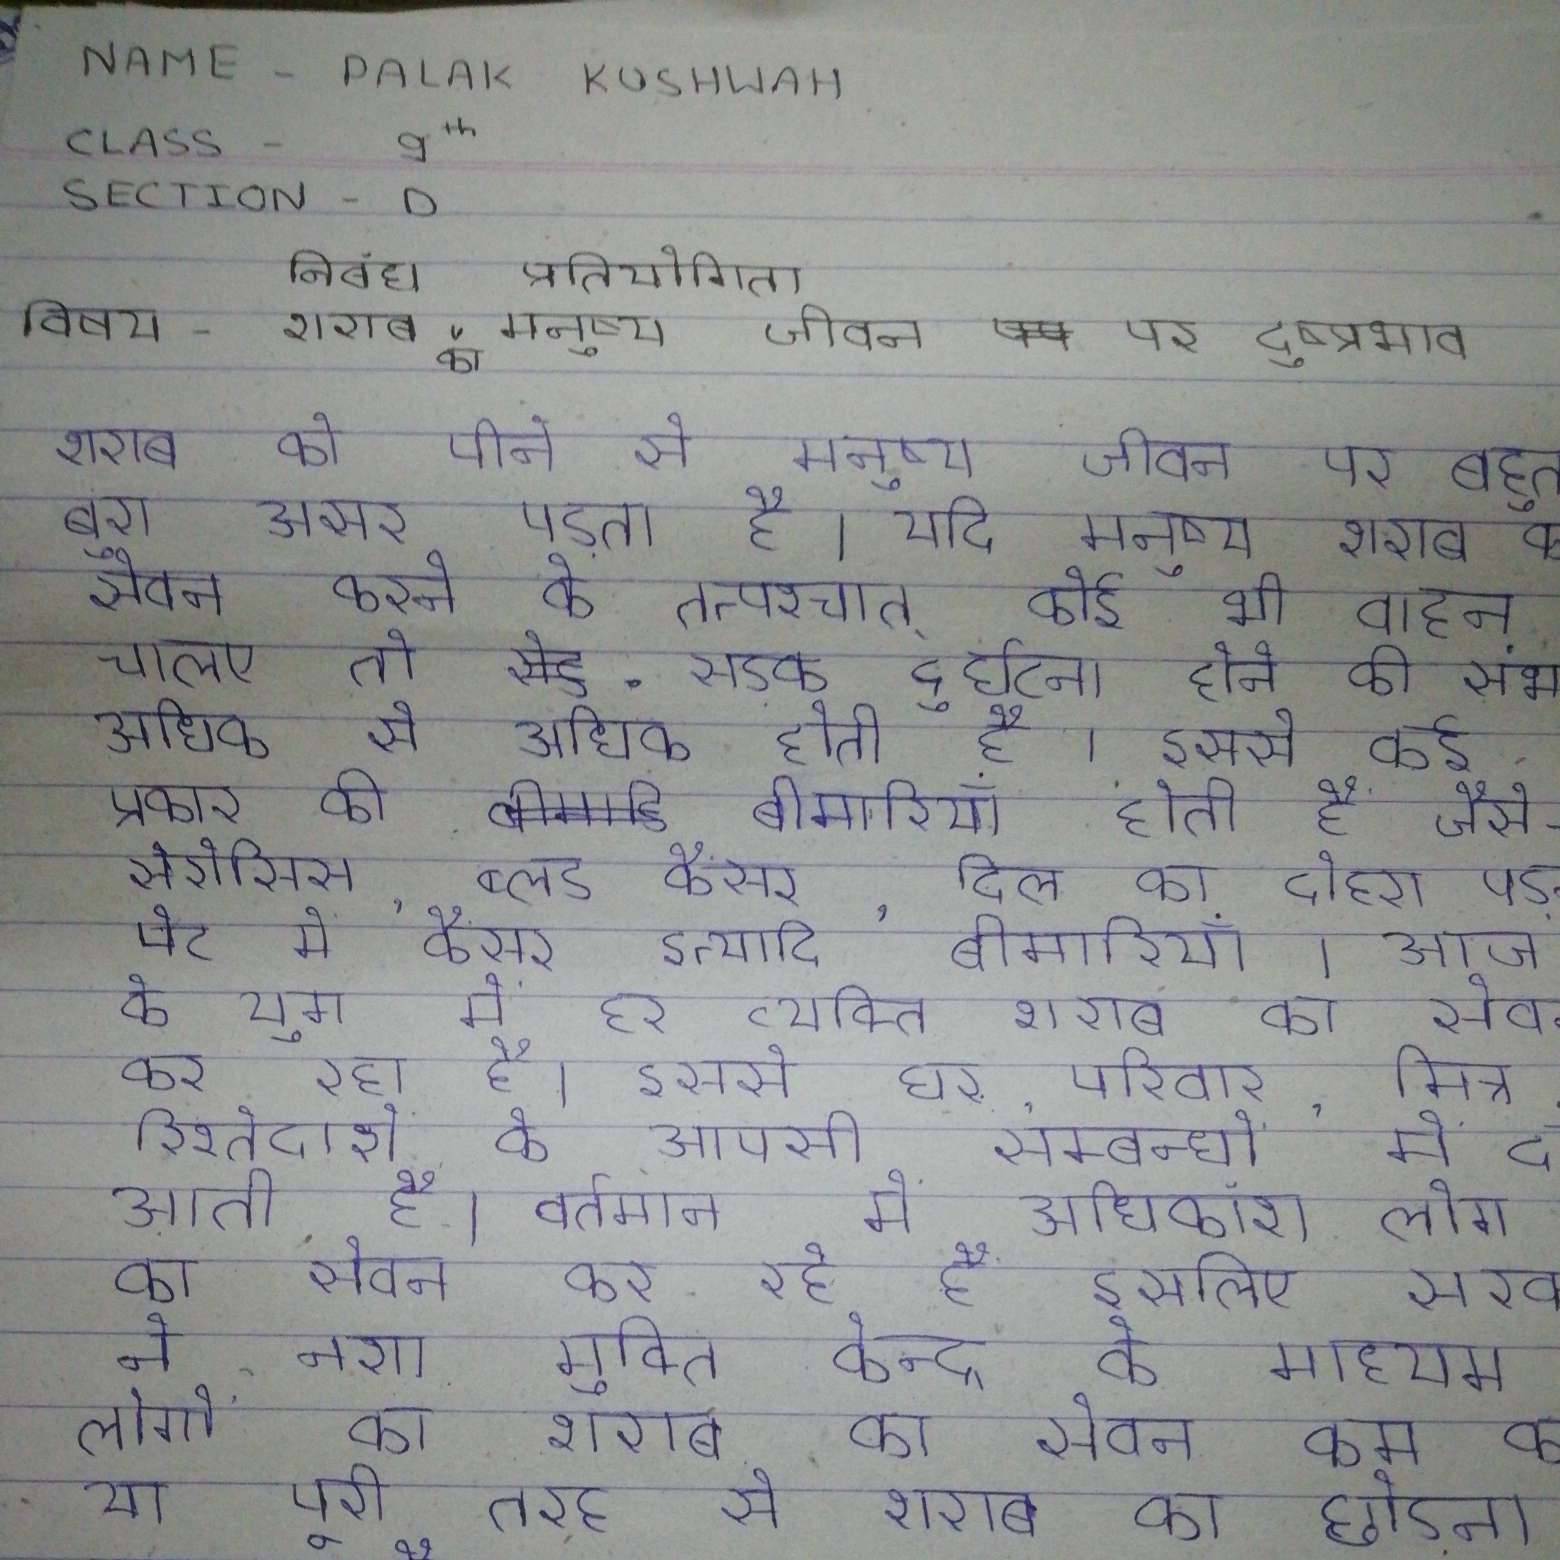 NAME - PALAK KUSHWAH
CLASS - 9th
SECTION - D
निबंध प्रतियोगिता
विषय - शराब का मनुष्य जीवन पर दुष्प्रभाव
शराब को पीने से मनुष्य जीवन पर बहुत
बुरा असर पड़ता है । यदि मनुष्य शराब
सेवन करने के तत्पश्चात् कोई भी वाहन
चालए तो सड़क दुर्घटना होने की संभ
अधिक से अधिक होती है । इससे कई
प्रकार की बीमारियाँ होती हैं जैसे-
सेरोसिस , ब्लड कैंसर , दिल का दोहरा पड़
पेट में कैंसर इत्यादि बीमारियाँ । आज
के युग में हर व्यक्ति शराब का सेव
कर रहा है । इससे घर , परिवार , मित्र ,
रिश्तेदारों के आपसी सम्बन्धों में
आती हैं । वर्तमान में अधिकांश लोग
का सेवन कर रहे हैं इसलिए सरक
ने नशा मुक्ति केन्द्र के माध्यम
लोगों का शराब का सेवन कम
या पूरी तरह से शराब का छोड़ना